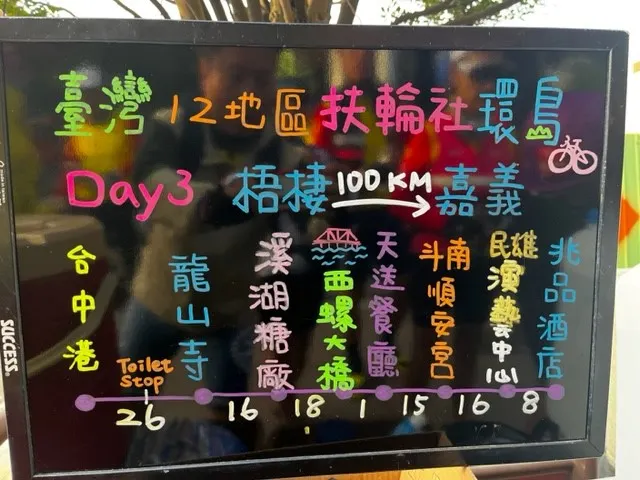 臺灣 12地區 扶輪社 環島
Day3 梧棲 100KM 嘉義
台中港
Toilet
Stop
龍山寺
溪湖糖廠
西螺大橋
天送餐廳
斗南
順安宮
民雄
演藝中心
兆品酒店
26 16 18 1 15 16 8
SUCCESS